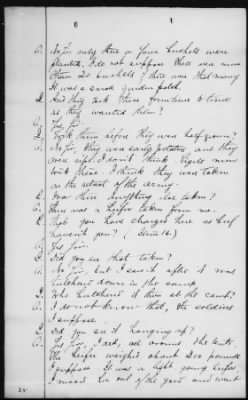 6
A. No Sir only three or four bushels were
planted. I do not suppose there was more
than 20 bushels if there was that many.
It was a small garden patch.
Q. And they took these from time to time
as they wanted them?
A. Yes Sir.
Q. Took them before they were half grown?
A. No Sir, they were early potatoes and they
were ripe. I don't think Sigel's men
took these. I think they were taken
on the retreat of the army.
Q. Was there anything else taken?
A. There was a heifer taken from me.
Q. That you have charged here as beef
haven't you? (Item 16.)
A. Yes Sir.
Q. Did you see that taken?
A. No Sir, but I saw it after it was
butchered down in the camp.
Q. Who butchered it there at the camp?
A. I do not know that, the soldiers
I suppose.
Q. Did you see it hanging up?
A. Yes Sir, I did, all around the tents.
The heifer weighed about 200 pounds
I suppose. It was a light young heifer.
I missed her out of the yard and went